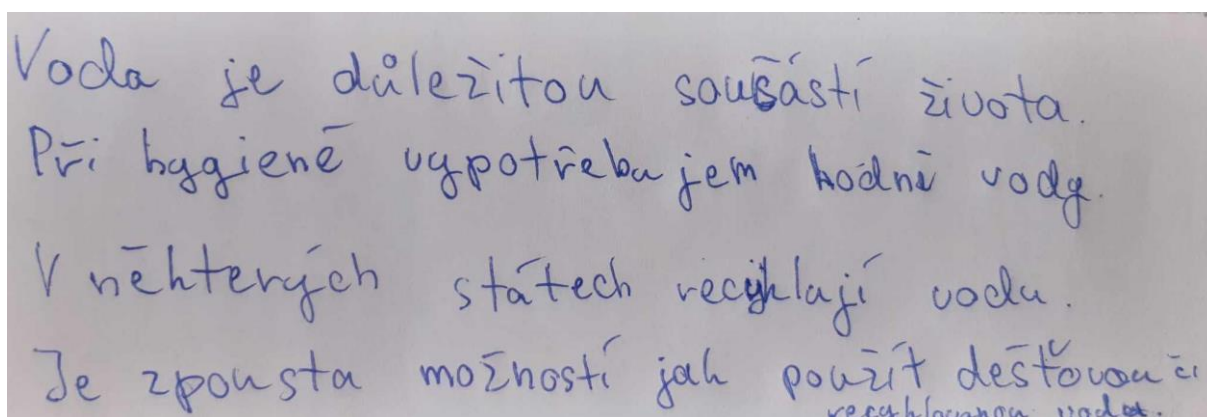 Voda je důležitou soušástí života.
Při hygieně vypotřebujem hodně vody.
V některých státech recyklají vodu.
Je zpousta možností jak použít dešťovou či
recyklovanou vodu